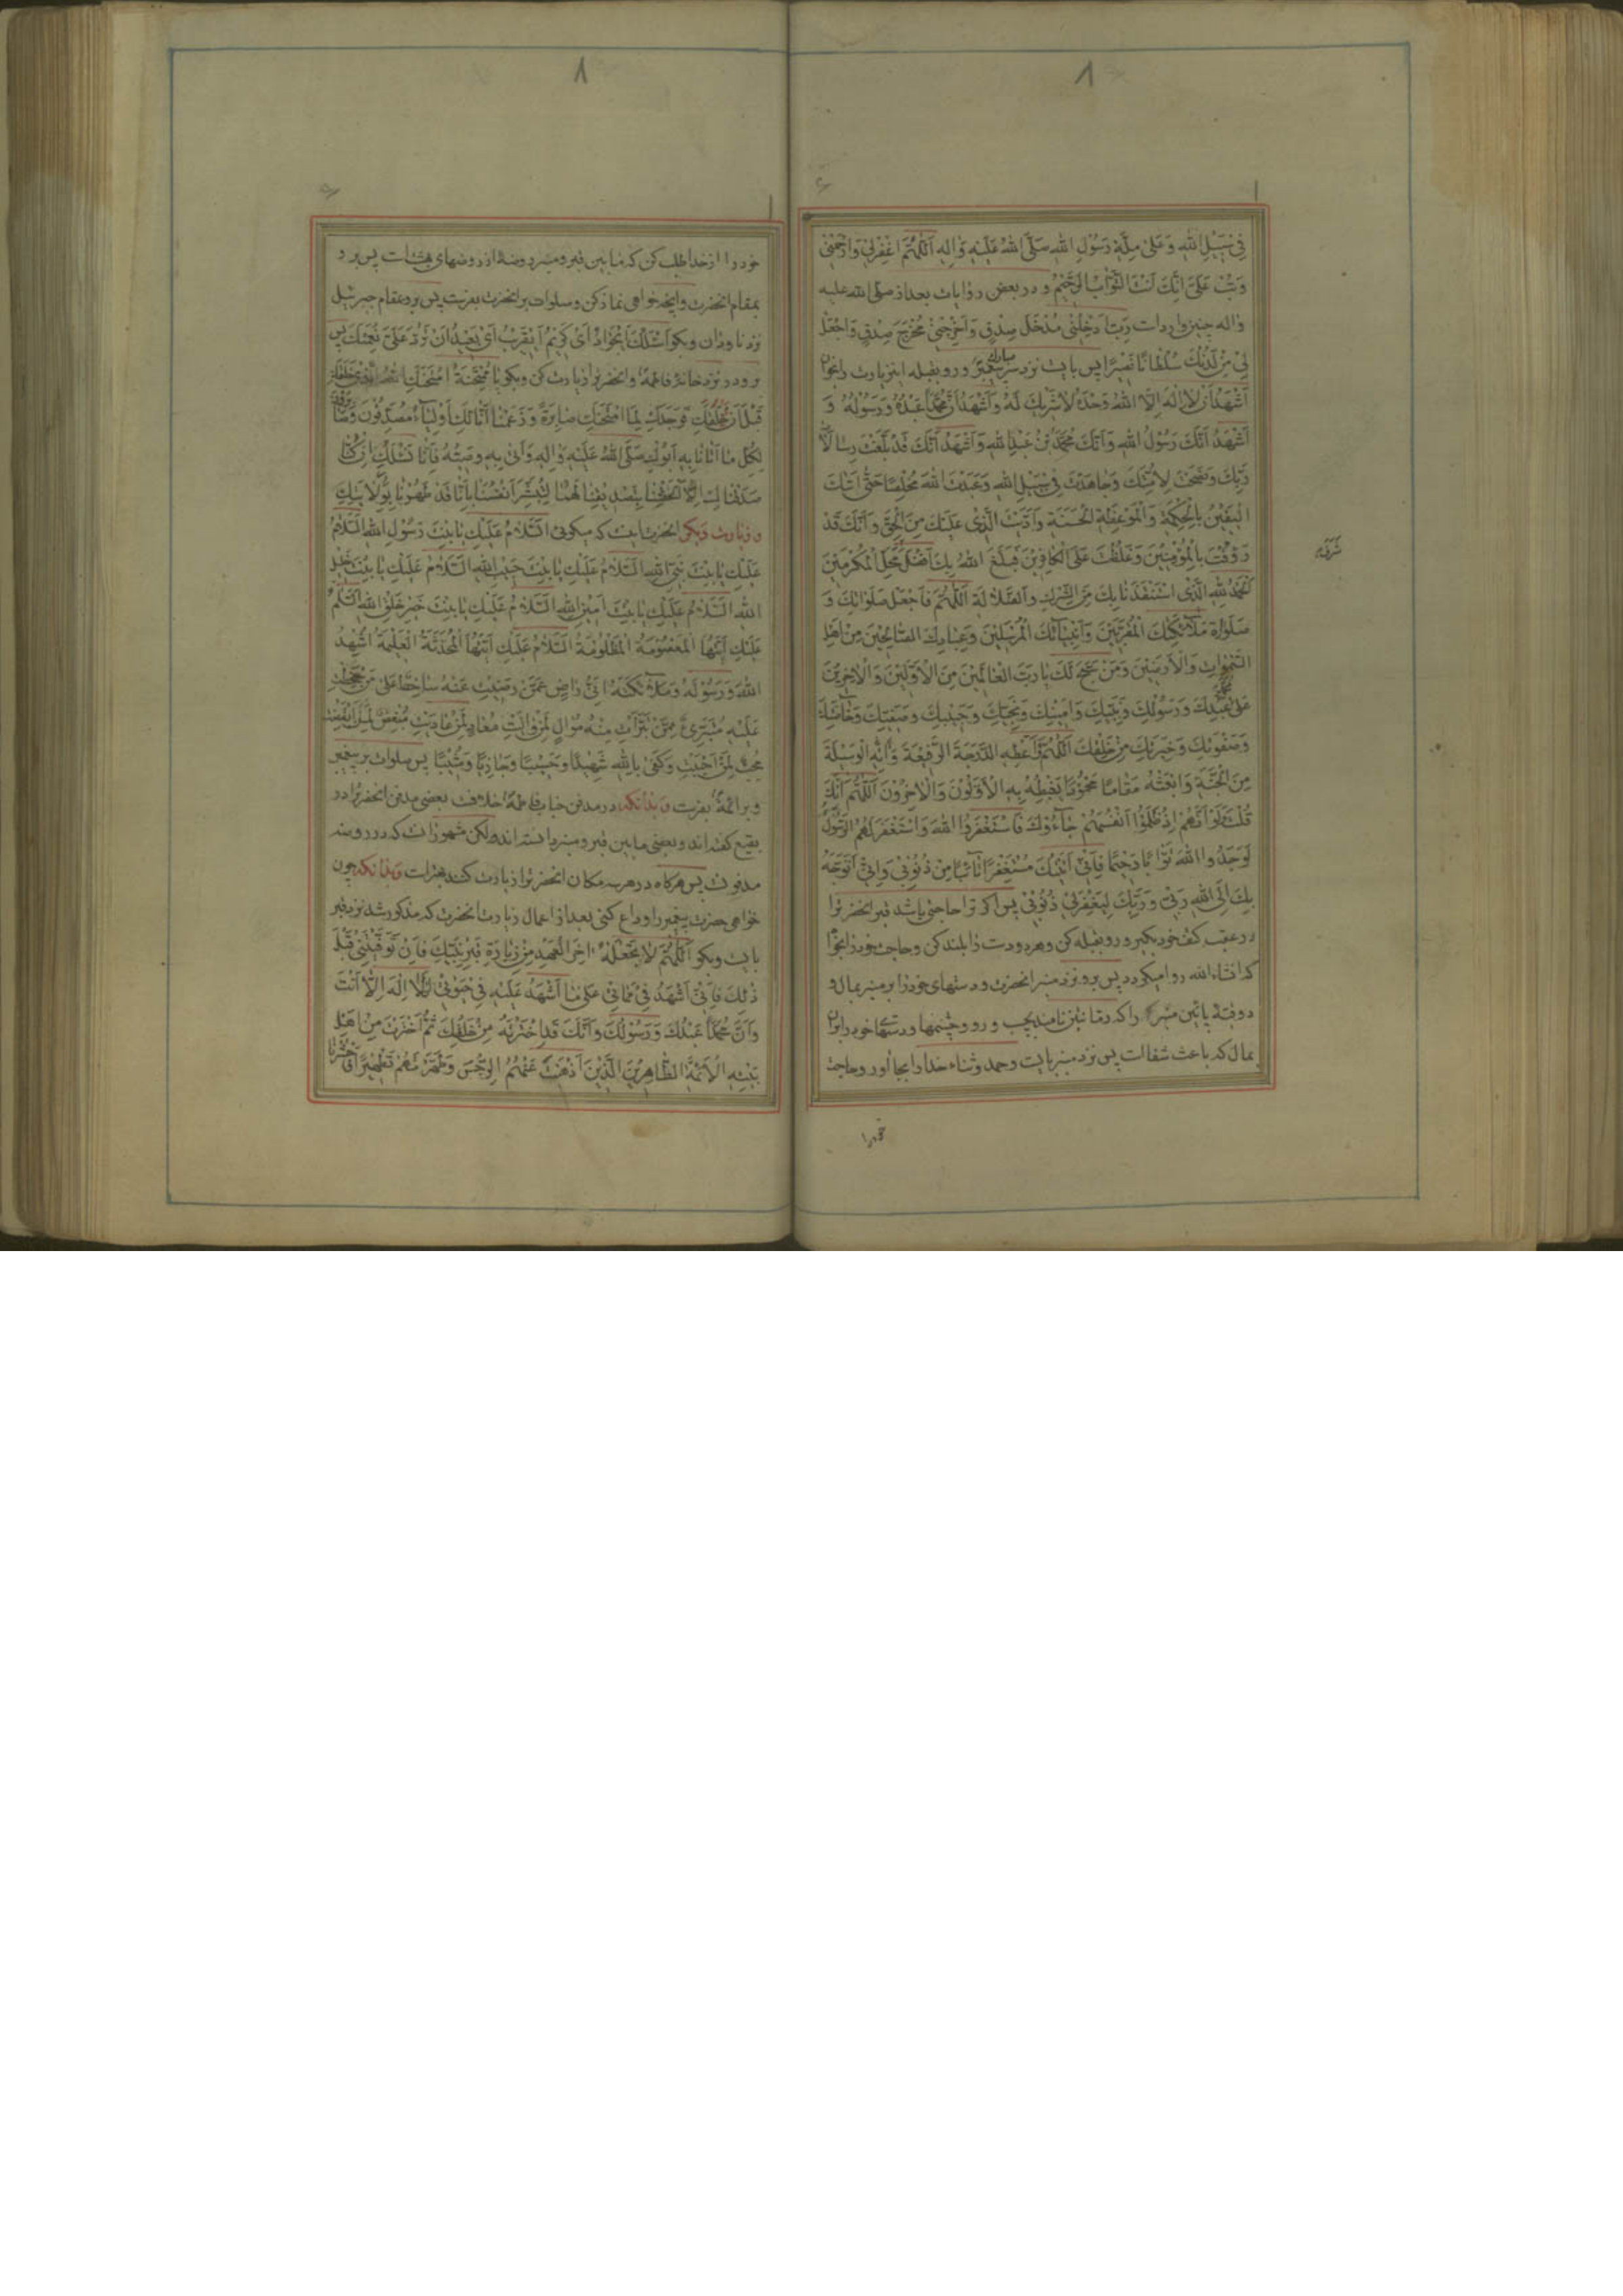 فِي سَبِيلِ اللهِ وَ عَلىٰ مِلَّةِ رَسُولِ اللهِ صَلَّى اللهُ عَلَيْهِ وَ اٰلِهِ اَللّٰهُمَّ اغْفِرْلِي وَارْحَمْنِي
وَ تُبْ عَلَيَّ اِنَّكَ اَنْتَ التَّوَّابُ الرَّحِيمُ و در بعض روايات بعد از صلى الله عليه
و اله چنين وارد است رَبِّ اَدْخِلْنِي مُدْخَلَ صِدْقٍ وَ اَخْرِجْنِي مُخْرَجَ صِدْقٍ وَ اجْعَلْ
لِي مِنْ لَدُنْكَ سُلْطَانًا نَصِيرًا پس بايست نزد سر مبارك پيغمبر و رو بقبله اين زيارت را بخوان
اَشْهَدُ اَنْ لَا اِلٰهَ اِلَّا اللهُ وَحْدَهُ لَا شَرِيكَ لَهُ وَ اَشْهَدُ اَنَّ مُحَمَّدًا عَبْدُهُ وَ رَسُولُهُ وَ
اَشْهَدُ اَنَّكَ رَسُولُ اللهِ وَ اَنَّكَ مُحَمَّدُ بْنُ عَبْدِ اللهِ وَ اَشْهَدُ اَنَّكَ قَدْ بَلَّغْتَ رِسَالَاتِ
رَبِّكَ وَ نَصَحْتَ لِاُمَّتِكَ وَ جَاهَدْتَ فِي سَبِيلِ اللهِ وَ عَبَدْتَ اللهَ مُخْلِصًا حَتّٰى اَتٰيكَ
الْيَقِينُ بِالْحِكْمَةِ وَ الْمَوْعِظَةِ الْحَسَنَةِ وَ اَدَّيْتَ الَّذِي عَلَيْكَ مِنَ الْحَقِّ وَ اَنَّكَ قَدْ
رَؤُفْتَ بِالْمُؤْمِنِينَ وَ غَلُظْتَ عَلَى الْكَافِرِينَ فَبَلَغَ اللهُ بِكَ اَفْضَلَ مَحَلِّ الْمُكَرَّمِينَ
اَلْحَمْدُ لِلّٰهِ الَّذِي اسْتَنْقَذَنَا بِكَ مِنَ الشِّرْكِ وَ الضَّلَالَةِ اَللّٰهُمَّ فَاجْعَلْ صَلَوَاتِكَ وَ
صَلَوَاتِ مَلَائِكَتِكَ الْمُقَرَّبِينَ وَ اَنْبِيَائِكَ الْمُرْسَلِينَ وَ عِبَادِكَ الصَّالِحِينَ مِنْ اَهْلِ
السَّمٰوَاتِ وَ الْاَرَضِينَ وَ مَنْ سَبَّحَ لَكَ يَا رَبَّ الْعَالَمِينَ مِنَ الْاَوَّلِينَ وَ الْاٰخِرِينَ
عَلٰى مُحَمَّدٍ عَبْدِكَ وَ رَسُولِكَ وَ نَبِيِّكَ وَ اَمِينِكَ وَ نَجِيِّكَ وَ حَبِيبِكَ وَ صَفِيِّكَ وَ خَاصَّتِكَ
وَ صَفْوَتِكَ وَ خِيَرَتِكَ مِنْ خَلْقِكَ اَللّٰهُمَّ وَ اَعْطِهِ الدَّرَجَةَ الرَّفِيعَةَ وَ اٰتِهِ الْوَسِيلَةَ
مِنَ الْجَنَّةِ وَ ابْعَثْهُ مَقَامًا مَحْمُودًا يَغْبِطُهُ بِهِ الْاَوَّلُونَ وَ الْاٰخِرُونَ اَللّٰهُمَّ اِنَّكَ
قُلْتَ وَ لَوْ اَنَّهُمْ اِذْ ظَلَمُوا اَنْفُسَهُمْ جَاءُوكَ فَاسْتَغْفَرُوا اللهَ وَ اسْتَغْفَرَ لَهُمُ الرَّسُولُ
لَوَجَدُوا اللهَ تَوَّابًا رَحِيمًا فَاِنِّي اَتَيْتُكَ مُسْتَغْفِرًا تَائِبًا مِنْ ذُنُوبِي وَ اِنِّي اَتَوَجَّهُ
بِكَ اِلَى اللهِ رَبِّي وَ رَبِّكَ لِيَغْفِرَلِي ذُنُوبِي پس اگر ترا حاجتي باشد قبر انحضرترا
در عقب كتف خود بكير و رو بقبله كن و هر دو دست را بلند كن و حاجت خود را بخواه
كه انشاء الله روا ميكردد پس برو نزد منبر انحضرت و دستهاى خود را بر منبر بمال و
دو قبه پائين منبر را كه رمانتين نامند بچسب و رو و چشمها و دستهاى خود را بران
بمال كه باعث شفا است پس نزد منبر بايست و حمد و ثناء خدا را بجا اور و حاجت
خود را
خود را از خدا طلب كن كه مابين قبر و منبر روضهٔ از روضهاى بهشت است پس برو
بمقام انحضرت و انچه خواهى نماز كن و صلوات بر انحضرت بفرست پس برو بمقام جبرئيل
نزد ناودان و بكو اَسْئَلُكَ اَيْ جَوَادُ اَيْ كَرِيمُ اَيْ قَرِيبُ اَيْ بَعِيدُ اَنْ تَرُدَّ عَلَيَّ نِعْمَتَكَ پس
برو در نزد خانهٔ فاطمه و انحضرترا زيارت كن و بكو يَا مُمْتَحَنَةُ امْتَحَنَكِ اللهُ الَّذِي خَلَقَكِ
قَبْلَ اَنْ يَخْلُقَكِ فَوَجَدَكِ لِمَا امْتَحَنَكِ صَابِرَةً وَ زَعَمْنَا اَنَّا لَكِ اَوْلِيَاءُ مُصَدِّقُونَ وَ صَابِرُونَ
لِكُلِّ مَا اَتَانَا بِهِ اَبُوكِ صَلَّى اللهُ عَلَيْهِ وَ اٰلِهِ وَ اَتٰى بِهِ وَصِيُّهُ فَاِنَّا نَسْئَلُكِ اِنْ كُنَّا
صَدَّقْنَاكِ اِلَّا اَلْحَقْتِنَا بِتَصْدِيقِنَا لَهُمَا لِنُبَشِّرَ اَنْفُسَنَا بِاَنَّا قَدْ طَهُرْنَا بِوِلَايَتِكِ
و زيارت ديكر انحضرت اينست كه ميكوئى اَلسَّلَامُ عَلَيْكِ يَا بِنْتَ رَسُولِ اللهِ اَلسَّلَامُ
عَلَيْكِ يَا بِنْتَ نَبِيِّ اللهِ اَلسَّلَامُ عَلَيْكِ يَا بِنْتَ حَبِيبِ اللهِ اَلسَّلَامُ عَلَيْكِ يَا بِنْتَ خَلِيلِ
اللهِ اَلسَّلَامُ عَلَيْكِ يَا بِنْتَ اَمِينِ اللهِ اَلسَّلَامُ عَلَيْكِ يَا بِنْتَ خَيْرِ خَلْقِ اللهِ اَلسَّلَامُ
عَلَيْكِ اَيَّتُهَا الْمَعْصُومَةُ الْمَظْلُومَةُ اَلسَّلَامُ عَلَيْكِ اَيَّتُهَا الْمُحَدَّثَةُ الْعَلِيمَةُ اُشْهِدُ
اللهَ وَ رَسُولَهُ وَ مَلَائِكَتَهُ اَنِّي رَاضٍ عَمَّنْ رَضِيتِ عَنْهُ سَاخِطٌ عَلٰى مَنْ سَخِطْتِ
عَلَيْهِ مُتَبَرِّئٌ مِمَّنْ تَبَرَّأْتِ مِنْهُ مُوَالٍ لِمَنْ وَالَيْتِ مُعَادٍ لِمَنْ عَادَيْتِ مُبْغِضٌ لِمَنْ اَبْغَضْتِ
مُحِبٌّ لِمَنْ اَحْبَبْتِ وَ كَفٰى بِاللهِ شَهِيدًا وَ حَسِيبًا وَ جَازِيًا وَ مُثِيبًا پس صلوات بر پيغمبر
و بر ائمه بفرست و بدانكه در مدفن جناب فاطمه خلافست بعضى مدفن انحضرترا در
بقيع كفته‌اند و بعضى مابين قبر و منبر دانسته‌اند و لكن مشهور انست كه در روضه
مدفون است پس هركاه در هر سه مكان انحضرترا زيارت كنند بهتر است و بدانكه چون
خواهى حضرت پيغمبر را وداع كنى بعد از اعمال زيارت انحضرت كه مذكور شد نزد قبر
بايست و بكو اَللّٰهُمَّ لَا تَجْعَلْهُ اٰخِرَ الْعَهْدِ مِنْ زِيَارَةِ قَبْرِ نَبِيِّكَ فَاِنْ تَوَفَّيْتَنِي قَبْلَ
ذٰلِكَ فَاِنِّي اَشْهَدُ فِي مَمَاتِي عَلٰى مَا اَشْهَدُ عَلَيْهِ فِي حَيٰوتِي اَنْ لَا اِلٰهَ اِلَّا اَنْتَ
وَ اَنَّ مُحَمَّدًا عَبْدُكَ وَ رَسُولُكَ وَ اَنَّكَ قَدِ اخْتَرْتَهُ مِنْ خَلْقِكَ ثُمَّ اخْتَرْتَ مِنْ اَهْلِ
بَيْتِهِ الْاَئِمَّةَ الطَّاهِرِينَ الَّذِينَ اَذْهَبْتَ عَنْهُمُ الرِّجْسَ وَ طَهَّرْتَهُمْ تَطْهِيرًا فَاحْشُرْنَا